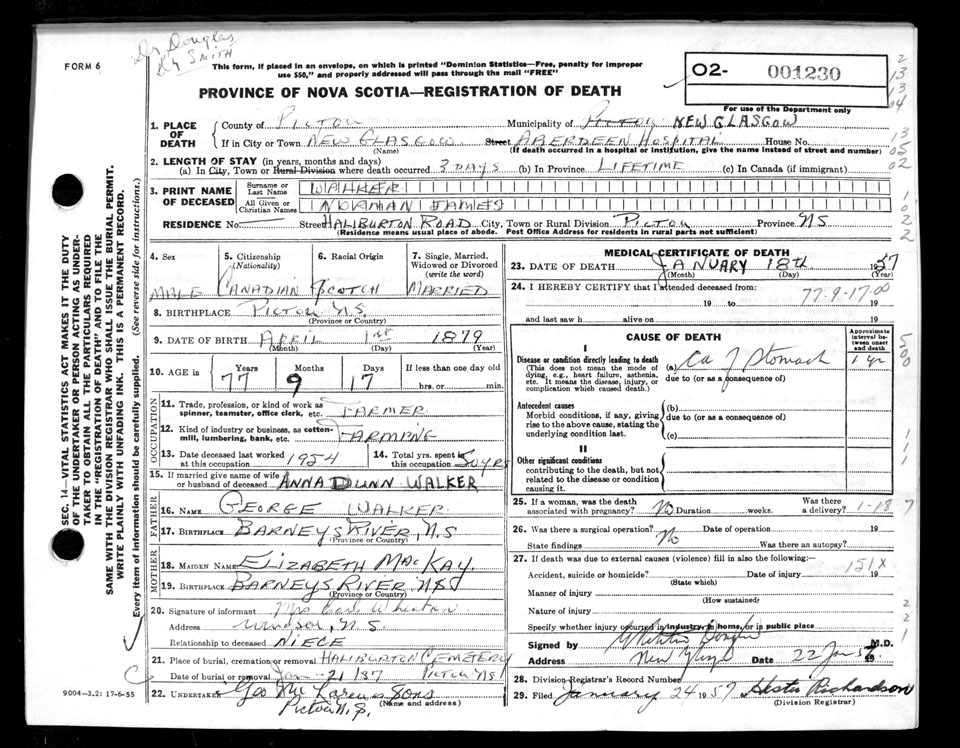 Dr Douglas
Dr Smith
FORM 6
This form, if placed in an envelope, on which is printed "Dominion Statistics—Free, penalty for improper
use $50," and properly addressed will pass through the mail "FREE"
02- 001230
PROVINCE OF NOVA SCOTIA—REGISTRATION OF DEATH
For use of the Department only
1. PLACE OF DEATH
County of PICTOU Municipality of PICTOU NEW GLASGOW
If in City or Town NEW GLASGOW Street ABERDEEN HOSPITAL House No.
(Name) (If death occurred in a hospital or institution, give the name instead of street and number)
2. LENGTH OF STAY (in years, months and days)
(a) In City, Town or Rural Division where death occurred 3 DAYS (b) In Province LIFETIME (c) In Canada (if immigrant)
3. PRINT NAME OF DECEASED
Surname or Last Name WALKER
All Given or Christian Names NORMAN JAMES
RESIDENCE No. Street HALIBURTON ROAD City, Town or Rural Division PICTOU Province NS
(Residence means usual place of abode. Post Office Address for residents in rural parts not sufficient)
4. Sex 5. Citizenship (Nationality) 6. Racial Origin 7. Single, Married, Widowed or Divorced (write the word)
MALE CANADIAN SCOTCH MARRIED
8. BIRTHPLACE PICTOU N.S.
(Province or Country)
9. DATE OF BIRTH APRIL 1st 1879
(Month) (Day) (Year)
10. AGE in Years Months Days If less than one day old
77 9 17 hrs. or min.
OCCUPATION
11. Trade, profession, or kind of work as
spinner, teamster, office clerk, etc. FARMER
12. Kind of industry or business, as cotton-
mill, lumbering, bank, etc. FARMING
13. Date deceased last worked at this occupation 1954 14. Total yrs. spent in this occupation 50 yrs
15. If married give name of wife
or husband of deceased ANNA DUNN WALKER
FATHER
16. Name GEORGE WALKER
17. Birthplace BARNEYS RIVER, N.S
(Province or Country)
MOTHER
18. MAIDEN NAME ELIZABETH MACKAY
19. Birthplace BARNEYS RIVER NS
(Province or Country)
20. Signature of informant Mrs Earl
Address Windsor, N.S.
Relationship to deceased NIECE
21. Place of burial, cremation or removal HALIBURTON CEMETERY
Date of burial or removal Jan 21/57 PICTOU NS
22. UNDERTAKER Geo McLaren & Sons
Pictou N.S. (Name and address)
MEDICAL CERTIFICATE OF DEATH
23. DATE OF DEATH JANUARY 18th 1957
(Month) (Day) (Year)
24. I HEREBY CERTIFY that I attended deceased from:
77-9-17-00
19 to 19
and last saw h alive on 19
CAUSE OF DEATH
Approximate interval between onset and death
I
Disease or condition directly leading to death
(This does not mean the mode of
dying, e.g., heart failure, asthenia,
etc. It means the disease, injury, or
complication which caused death.)
(a) Ca of Stomach 1 yr
due to (or as a consequence of)
Antecedent causes
Morbid conditions, if any, giving
rise to the above cause, stating the
underlying condition last.
(b)
due to (or as a consequence of)
(c)
II
Other significant conditions
contributing to the death, but not
related to the disease or condition
causing it.
25. If a woman, was the death associated with pregnancy? No Duration weeks. Was there a delivery? 1-18
26. Was there a surgical operation? No Date of operation 19
State findings Was there an autopsy?
27. If death was due to external causes (violence) fill in also the following:—
Accident, suicide or homicide? Date of injury 151X 19
(State which)
Manner of injury
(How sustained)
Nature of injury
Specify whether injury occurred in industry, in home, or in public place
Signed by M.D.
Address New Glasgow Date 22 Jan
28. Division Registrar's Record Number
29. Filed January 24 1957 Hester Richardson
(Division Registrar)
SEC. 14—VITAL STATISTICS ACT MAKES IT THE DUTY
OF THE UNDERTAKER OR PERSON ACTING AS UNDER-
TAKER TO OBTAIN ALL THE PARTICULARS REQUIRED
IN THE "REGISTRATION OF DEATH" AND TO FILE THE
SAME WITH THE DIVISION REGISTRAR WHO SHALL ISSUE THE BURIAL PERMIT.
WRITE PLAINLY WITH UNFADING INK. THIS IS A PERMANENT RECORD.
Every item of information should be carefully supplied. (See reverse side for instructions.)
9004-3.2: 17-6-55